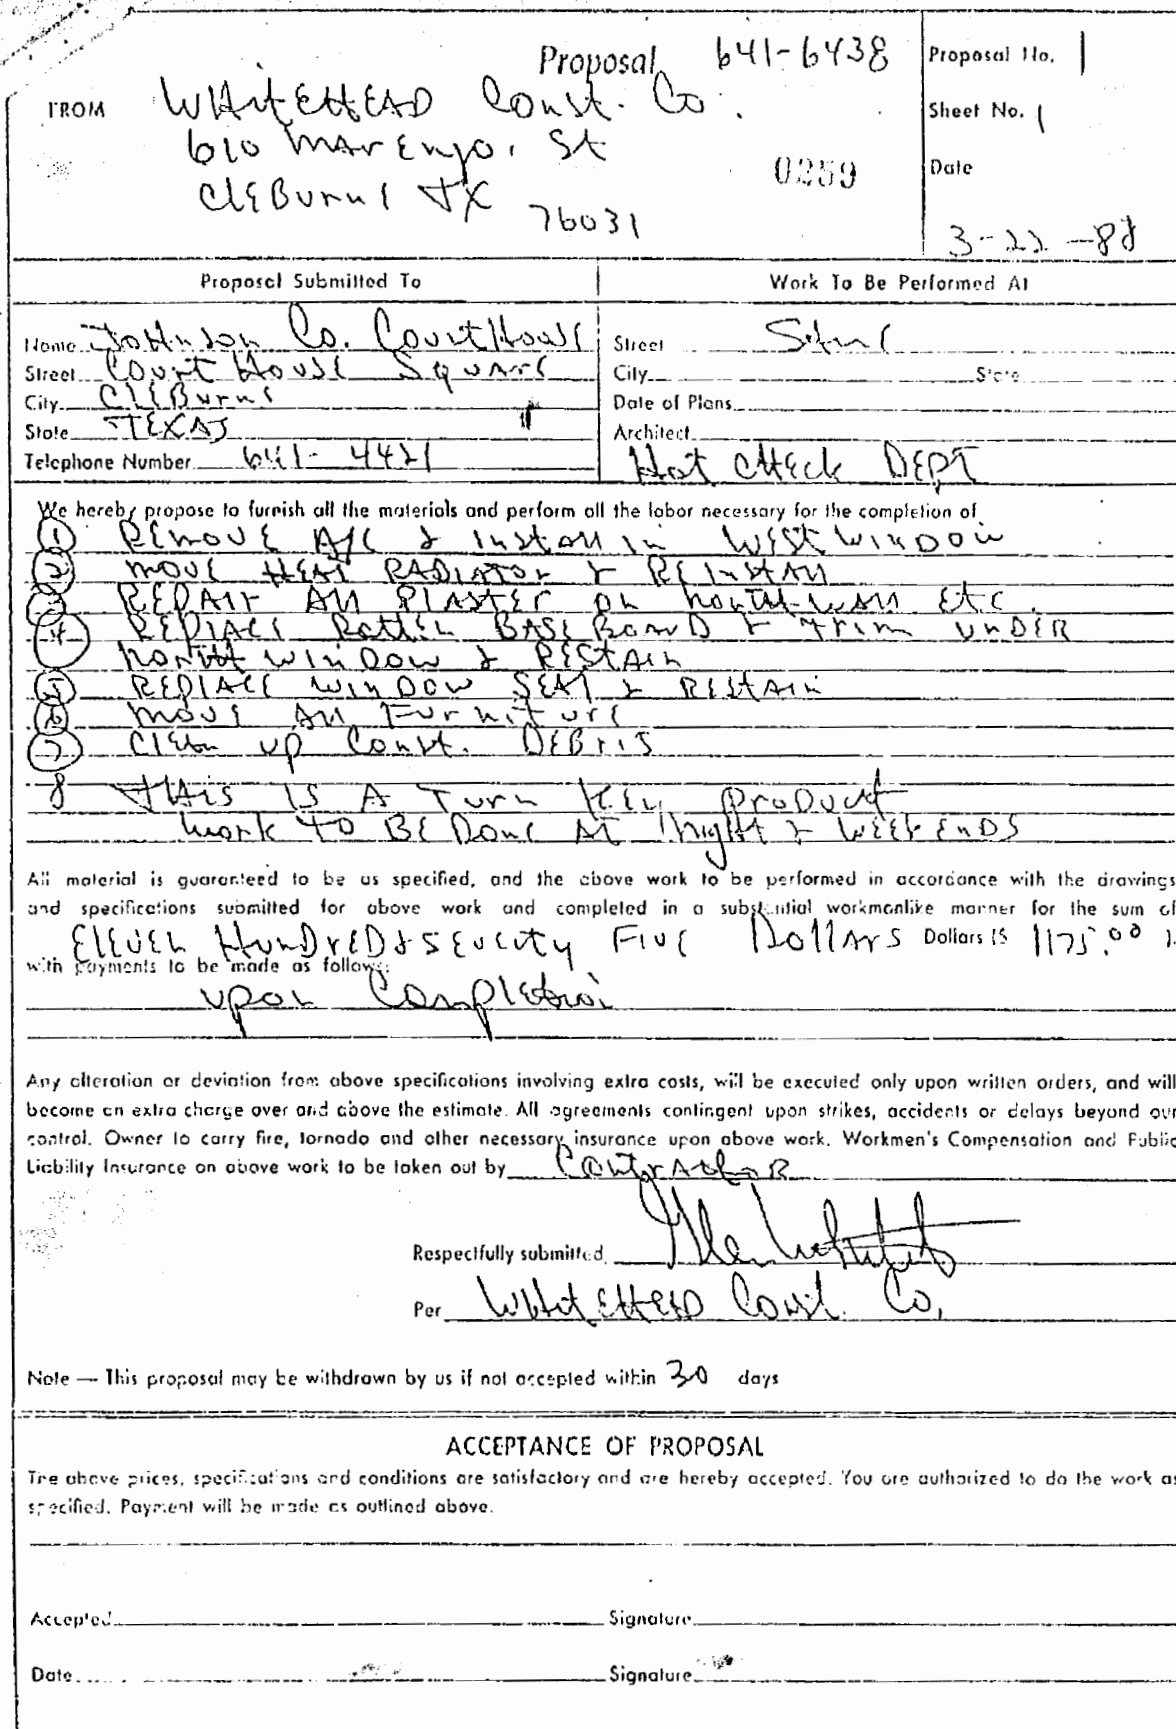 Proposal 641-6438
Proposal No. 1
FROM WHITEHEAD Const. Co.
Sheet No. 1
610 MARENGO. St
0259
Date
CLEBURNE TX 76031
3-22-88
Proposal Submitted To
Work To Be Performed At
Name Johnson Co. CourtHouse
Street Same
Street Court House Square
City State
City CLEBurne
Date of Plans
State TEXAS
Architect
Telephone Number 641-4421
Hot CHECK DEPT
We hereby propose to furnish all the materials and perform all the labor necessary for the completion of
1 REMOVE A/C & Install in WEST WINDOW
2 MOVE HEAT RADIATOR & REInstall
3 REPAIR All PLASTER on north-wall Etc.
4 REPLACE Rotten BASE Board & Trim UNDER
NORTH WINDOW & RESTAIN
5 REPLACE WINDOW SEAT & RESTAIN
6 MOVE All Furniture
7 Clean up Const. DEBRIS
8 THis IS A Turn Key PRODUCT
work TO BE Done At night & WEEKENDS
All material is guaranteed to be as specified, and the above work to be performed in accordance with the drawings
and specifications submitted for above work and completed in a substantial workmanlike manner for the sum of
Eleven HunDrED & Seventy Five Dollars Dollars ($ 1175.00 ).
with payments to be made as follows:
upon Completion
Any alteration or deviation from above specifications involving extra costs, will be executed only upon written orders, and will
become an extra charge over and above the estimate. All agreements contingent upon strikes, accidents or delays beyond our
control. Owner to carry fire, tornado and other necessary insurance upon above work. Workmen's Compensation and Public
Liability Insurance on above work to be taken out by ContrActoR
Respectfully submitted Glen Whitehead
Per WHITEHEAD Const. Co.
Note — This proposal may be withdrawn by us if not accepted within 30 days
ACCEPTANCE OF PROPOSAL
The above prices, specifications and conditions are satisfactory and are hereby accepted. You are authorized to do the work as
specified. Payment will be made as outlined above.
Accepted Signature
Date Signature